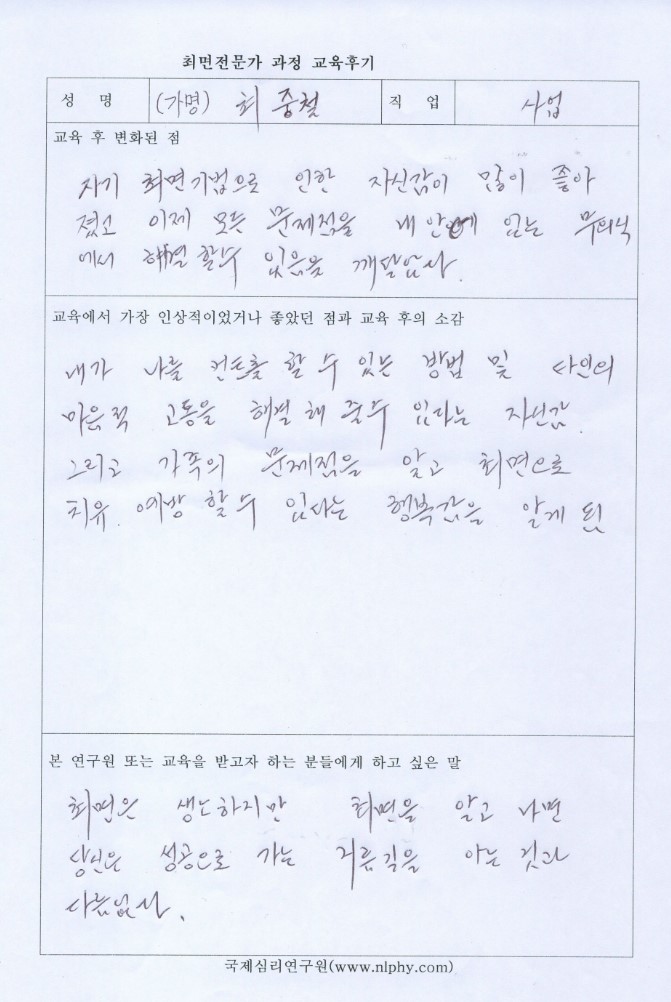 최면전문가 과정 교육후기
성 명 (가명) 최 중철 직 업 사업
교육 후 변화된 점
자기 최면기법으로 인한 자신감이 많이 좋아
졌고 이제 모든 문제점을 내 안에 있는 무의식
에서 해결 할수 있음을 깨달았다.
교육에서 가장 인상적이었거나 좋았던 점과 교육 후의 소감
내가 나를 컨트롤 할 수 있는 방법 및 타인의
마음적 고통을 해결 해 줄수 있다는 자신감.
그리고 가족의 문제점을 알고 최면으로
치유. 예방 할수 있다는 행복감을 알게 됨
본 연구원 또는 교육을 받고자 하는 분들에게 하고 싶은 말
최면은 생소하지만 최면을 알고 나면
당신은 성공으로 가는 지름길을 아는 것과
다름없다.
국제심리연구원(www.nlphy.com)